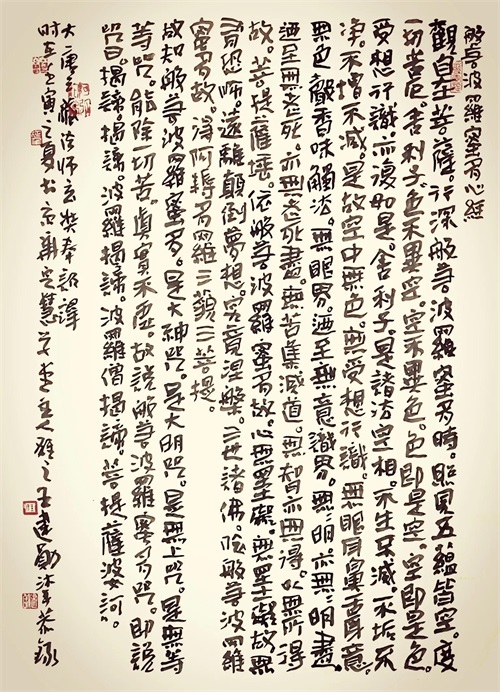 般若波羅蜜多心經
觀自在菩薩。行深般若波羅蜜多時。照見五蘊皆空。度
一切苦厄。舍利子。色不異空。空不異色。色即是空。空即是色。
受想行識。亦復如是。舍利子。是諸法空相。不生不滅。不垢不
淨。不增不減。是故空中無色。無受想行識。無眼耳鼻舌身意。
無色聲香味觸法。無眼界。迺至無意識界。無無明。亦無無明盡。
迺至無老死。亦無老死盡。無苦集滅道。無智亦無得。以無所得
故。菩提薩埵。依般若波羅蜜多故。心無罣礙。無罣礙故。無
有恐怖。遠離顛倒夢想。究竟涅槃。三世諸佛。依般若波羅
蜜多故。得阿耨多羅三藐三菩提。
故知般若波羅蜜多。是大神咒。是大明咒。是無上咒。是無等
等咒。能除一切苦。真實不虛。故說般若波羅蜜多咒。即說
咒曰。揭諦。揭諦。波羅揭諦。波羅僧揭諦。菩提薩婆訶。
大唐三藏法師玄奘奉詔譯
时在壬寅之夏书於京華定慧 王建勛沐手恭錄